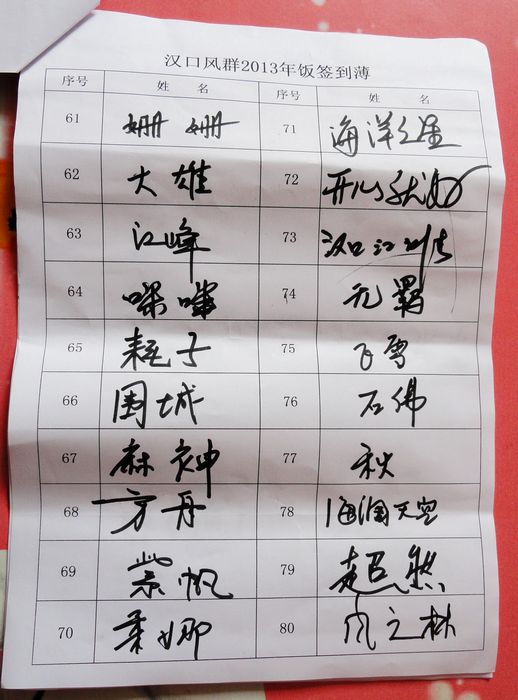 汉口风群2013年饭签到薄
序号 姓 名 序号 姓 名
61 姗姗 71 海洋之星
62 大雄 72 开心就好
63 江峰 73 汉口江
64 74 无羁
65 耗子 75 飞雪
66 围城 76 石佛
67 麻神 77 秋
68 方丹 78 海阔天空
69 紫帆 79 超然
70 柔娜 80 风之林